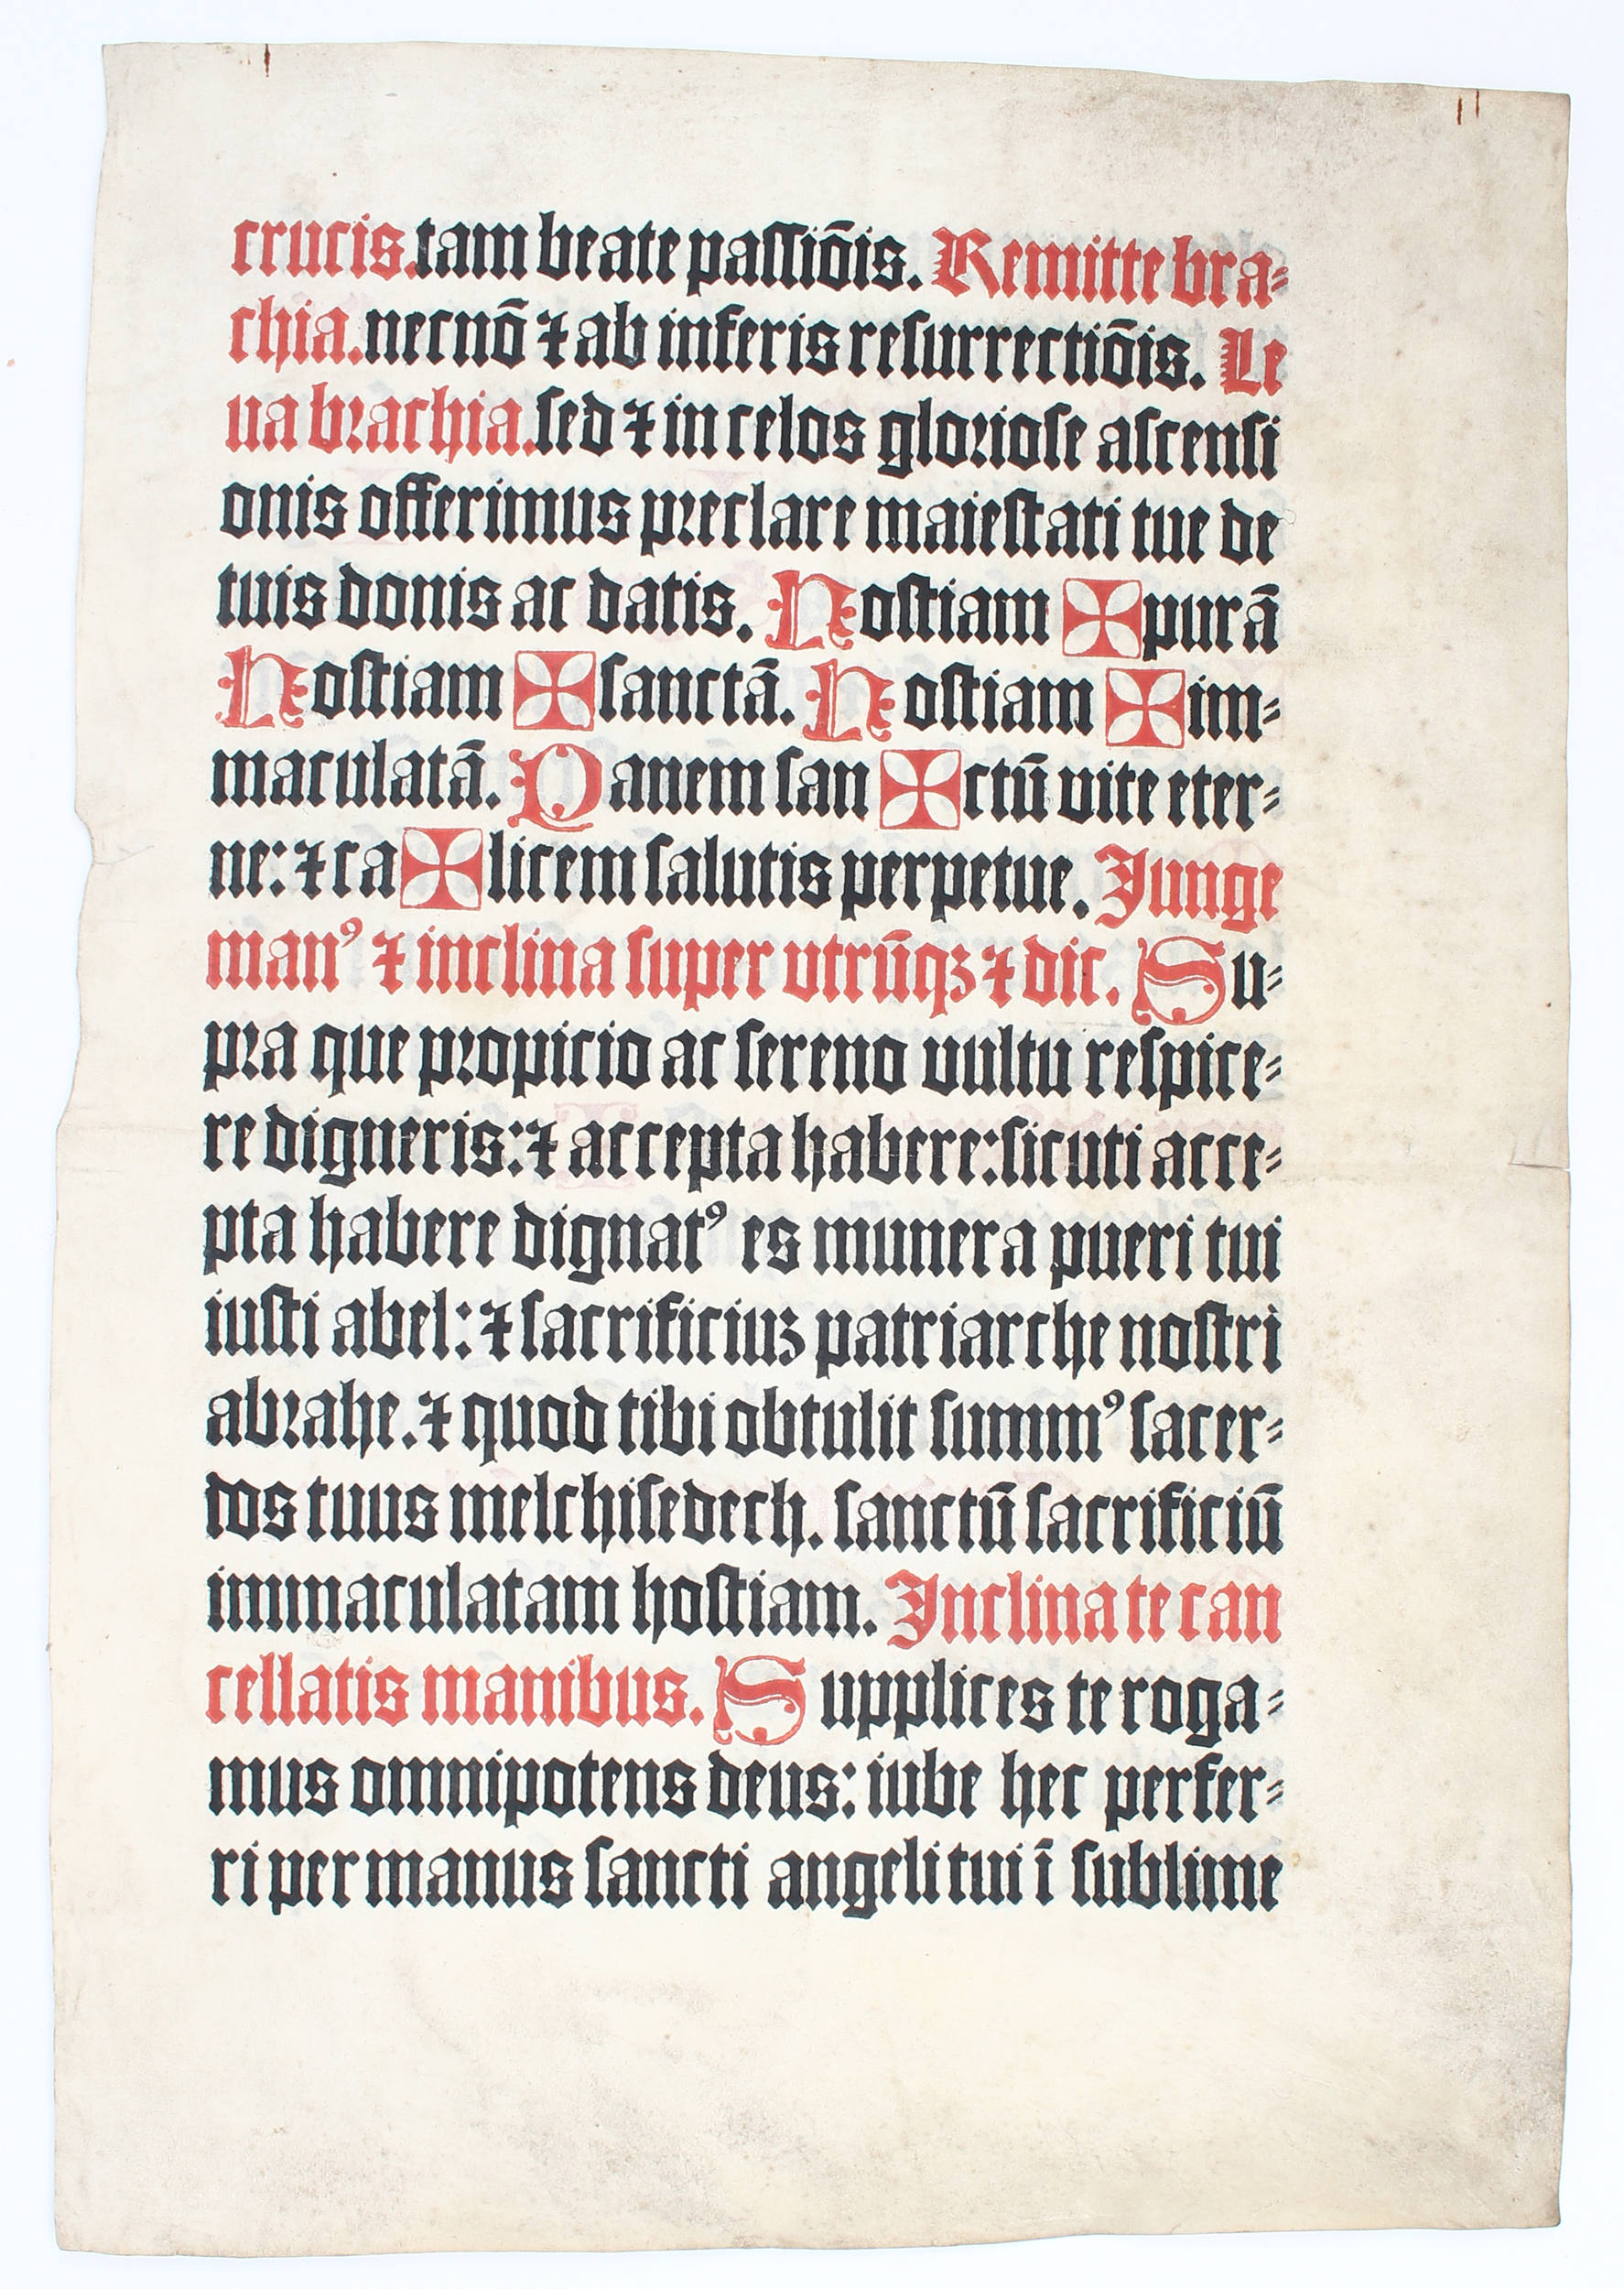 crucis.tam beate paſſiōis. Remitte bra⸗
chia.necnō ⁊ ab inferis reſurrectiōis. Le
ua bꝛachia.ſed ⁊ in celos gloꝛioſe aſcenſi
onis offerimus pꝛeclare maieſtati tue de
tuis donis ac datis. Hoſtiam ✠ purā
Hoſtiam ✠ ſanctā. Hoſtiam ✠ im⸗
maculatā. Panem ſan ✠ ctū vite eter⸗
ne: ⁊ ca ✠ licem ſalutis perpetue. Junge
manꝰ ⁊ inclina ſuper vtrūqꝫ ⁊ dic. Su⸗
pꝛa que pꝛopicio ac ſereno vultu reſpice⸗
re digneris: ⁊ accepta habere: ſicuti acce⸗
pta habere dignatꝰ es munera pueri tui
iuſti abel: ⁊ ſacrificiuꝫ patriarche noſtri
abꝛahe. ⁊ quod tibi obtulit ſummꝰ ſacer⸗
dos tuus melchiſedech. ſanctū ſacrificiū
immaculatam hoſtiam. Inclina te can
cellatis manibus. Supplices te roga⸗
mus omnipotens deus: iube hec perfer⸗
ri per manus ſancti angeli tui ī ſublime